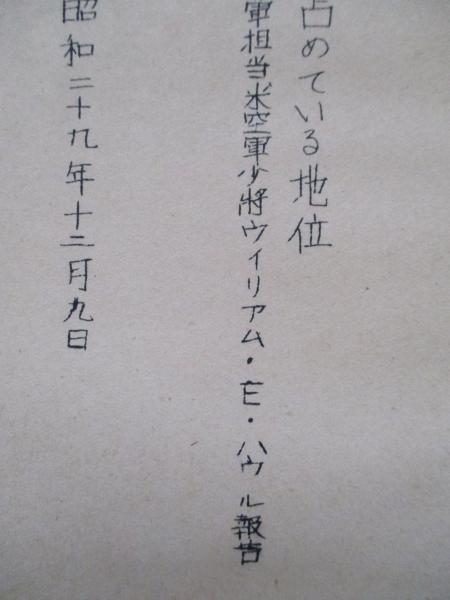 占めている地位
軍担当米空軍少將ウイリアム・E・ハウル報告
昭和二十九年十二月九日